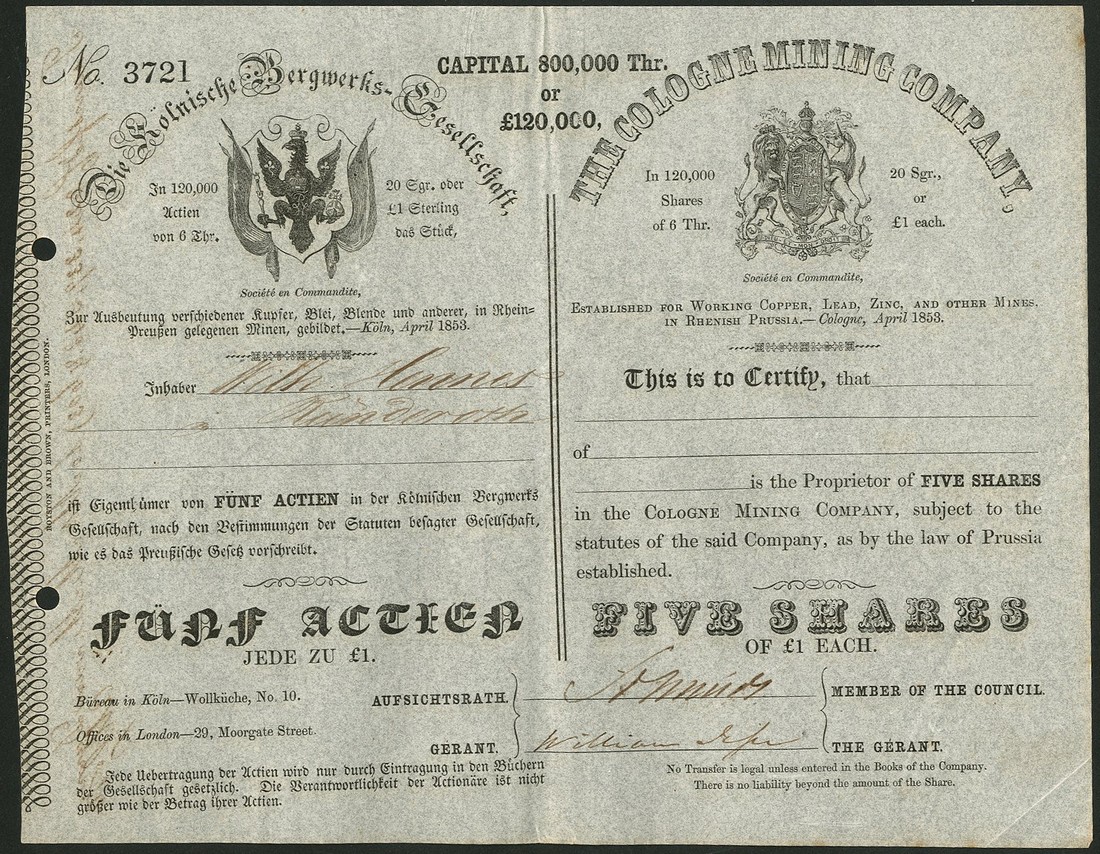 No. 3721
Die Kölnische Bergwerks-Gesellschaft,
CAPITAL 800,000 Thr.
or
£120,000,
THE COLOGNE MINING COMPANY,
In 120,000
Actien
von 6 Thr.
20 Sgr. oder
£1 Sterling
das Stück,
In 120,000
Shares
of 6 Thr.
20 Sgr.,
or
£1 each.
Société en Commandite,
Zur Ausbeutung verschiedener Kupfer, Blei, Blende und anderer, in Rhein-
Preußen gelegenen Minen, gebildet.—Köln, April 1853.
Inhaber
ist Eigenthümer von FÜNF ACTIEN in der Kölnischen Bergwerks
Gesellschaft, nach den Bestimmungen der Statuten besagter Gesellschaft,
wie es das Preußische Gesetz vorschreibt.
FÜNF ACTIEN
JEDE ZU £1.
Société en Commandite,
ESTABLISHED FOR WORKING COPPER, LEAD, ZINC, AND OTHER MINES,
IN RHENISH PRUSSIA.—Cologne, April 1853.
This is to Certify, that
of
is the Proprietor of FIVE SHARES
in the COLOGNE MINING COMPANY, subject to the
statutes of the said Company, as by the law of Prussia
established.
FIVE SHARES
OF £1 EACH.
Büreau in Köln—Wollküche, No. 10.
Offices in London—29, Moorgate Street.
AUFSICHTSRATH.
MEMBER OF THE COUNCIL.
GÉRANT.
William
THE GÉRANT.
Jede Uebertragung der Actien wird nur durch Eintragung in den Büchern
der Gesellschaft gesetzlich. Die Verantwortlichkeit der Actionäre ist nicht
größer wie der Betrag ihrer Actien.
No Transfer is legal unless entered in the Books of the Company.
There is no liability beyond the amount of the Share.
ROYSTON AND BROWN, PRINTERS, LONDON.